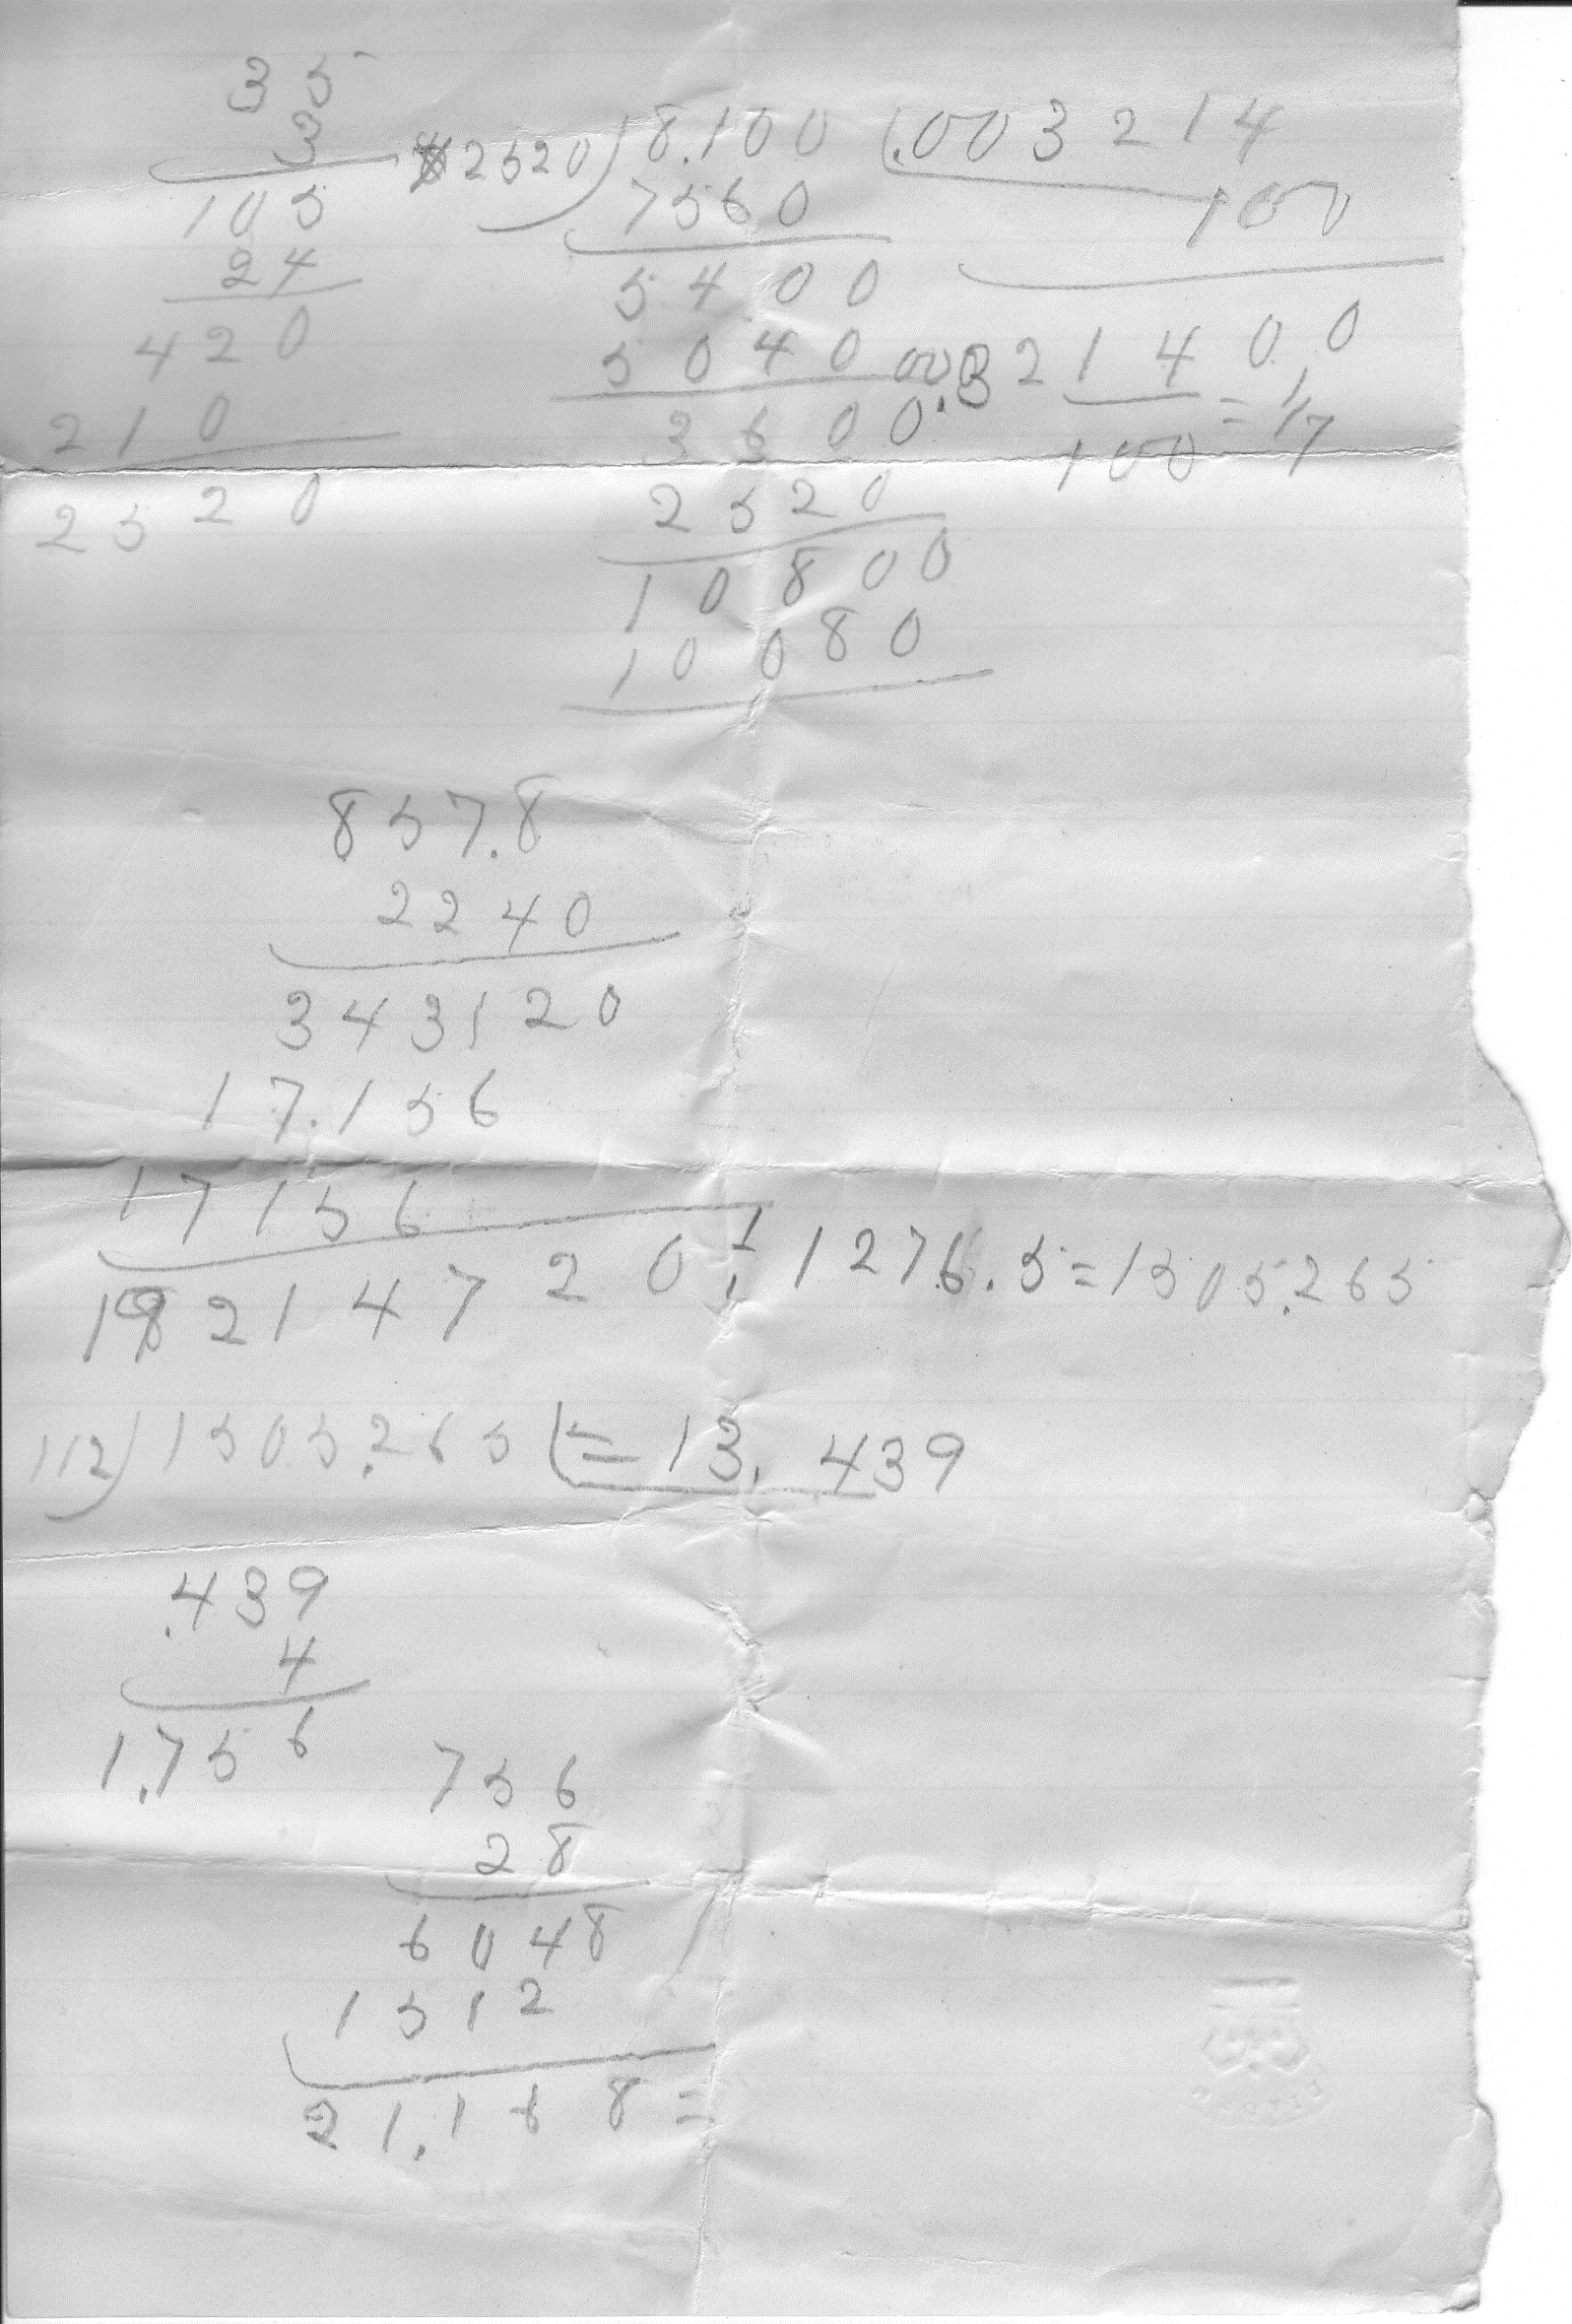 35
3
105
24
420
210
2520
2520)8.100(.003214
7560
100
5400
5040
00.321400
14/100 = 1/7
3600
2520
10800
10080
857.8
2240
343120
17.156
17156
1921472 0 ÷ 1276.5=1505.265
112)1505.265(=13.439
.439
4
1.756
756
28
6048
1512
21.168=